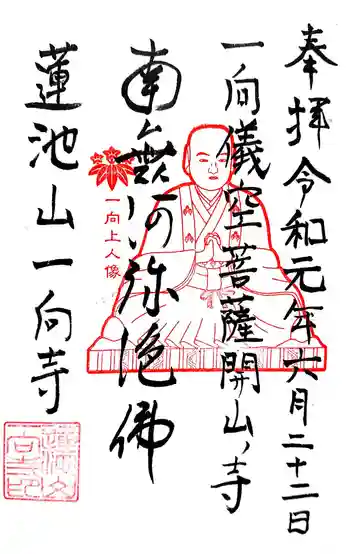 奉拝令和元年六月二十二日
一向儀空菩薩開山ノ寺
南無阿弥陀佛
一向上人像
蓮池山一向寺